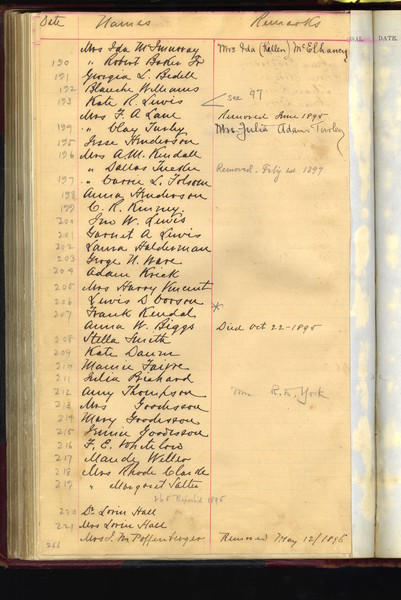 Date Names Remarks
Mrs Ida McMurray Mrs Ida (Kellen) McElhaney
190 " Robert Baker Jr
191 Georgia L. Bedell
192 Blanche Williams
193 Kate R. Lewis see 97
Mrs F. A. Lane Removed June 1895
194 " Clay Turley Mrs. Julia Adams Turley
195 Jesse Henderson
196 Mrs A. M. Kendall
" Dallas Removed. 1897
197 " Carrie L. Folsom
198 Anna Henderson
199 C. R. Kinney
200 Jno W. Lewis
201 Garnet A Lewis
202 Laura Halderman
203 George N. Ware
204 Adam Krick
205 Mrs Harry Vincent
206 Lewis D Corson
207 Frank Kendal *
Anna W. Biggs Died Oct 22-1895
208 Stella Smith
209 Kate Daum
210 Mamie
211 Julia Prichard
212 Amy Thompson Mrs. R. M. York
213 Mrs Goodesson
214 Mary Goodesson
215 Goodesson
216 F. E. Whitlow
217 Maude Weller
218 Mrs Rhode Clarde
219 " Margaret Salter
265 Reported 1895
220 Dr Lovin Hall
221 Mrs Lovin Hall
Mrs J. M. Poffenberger Removed May 12/1896
266
DATE.